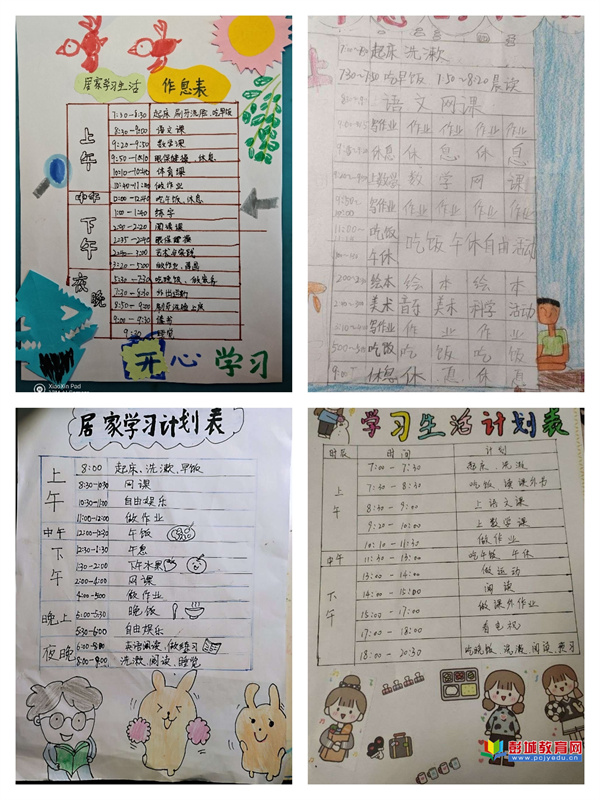 居家学习生活 作息表
上午
7:30-8:30 起床刷牙洗脸、吃早饭
8:30-9:00 语文课
9:20-9:50 数学课
9:50-10:10 眼保健操、休息
10:10-10:40 体育课
10:40-11:00 做作业
中午
12:00-12:40 吃午饭、休息
下午
1:00-1:40 练字
2:00-2:20 阅读课
2:35-2:40 眼保健操
2:40-3:00 艺术与实践
3:20-5:00 做作业、
夜晚
5:30-7:30 吃晚饭、做家务
7:30-8:30 外出运动
8:50-9:00 刷牙洗澡上床
9:00-9:30 读书
9:30 睡觉
开心学习
XiaoXin Pad
起床 洗漱
7:30-7:50 吃早饭 7:50-8:20 晨读
语文网课
写作业 作业 作业 作业 作业
休息 休息 休息
上数学 数学网课
写作业 作业 作业 作业 作业
吃饭 吃饭午休自由活动
午休
绘本 绘本 绘本
美术 音乐 美术 科学 活动
写作业 作业 作业
吃饭 吃饭 吃饭
休息 休息 休息
居家学习计划表
上午
8:00 起床、洗漱、早饭
8:30-10:30 网课
10:30-11:00 自由娱乐
11:00-12:00 做作业
中午
12:00-12:30 午饭
下午
12:30-1:30 午息
1:30-2:00 下午水果
2:00-4:00 网课
4:00-5:00 做作业
晚上
5:00-5:30 晚饭
5:30-6:00 自由娱乐
夜晚
6:00-8:00 英语阅读、做练习
8:00-9:00 洗漱、阅读、睡觉
学习生活计划表
时段 时间 计划
上午
7:00-7:30 起床、洗漱
7:30-8:30 吃饭 读课外书
8:30-9:00 上语文课
9:20-10:00 上数学课
10:10-11:30 做作业
中午
11:30-13:00 吃午饭、午休
下午
13:00-14:00 做运动
14:00-15:00 阅读
15:00-17:00 做课外作业
17:00-18:00 看电视
18:00-20:30 吃晚饭、洗漱、阅读、练习
彭城教育网
www.pcjyedu.cn